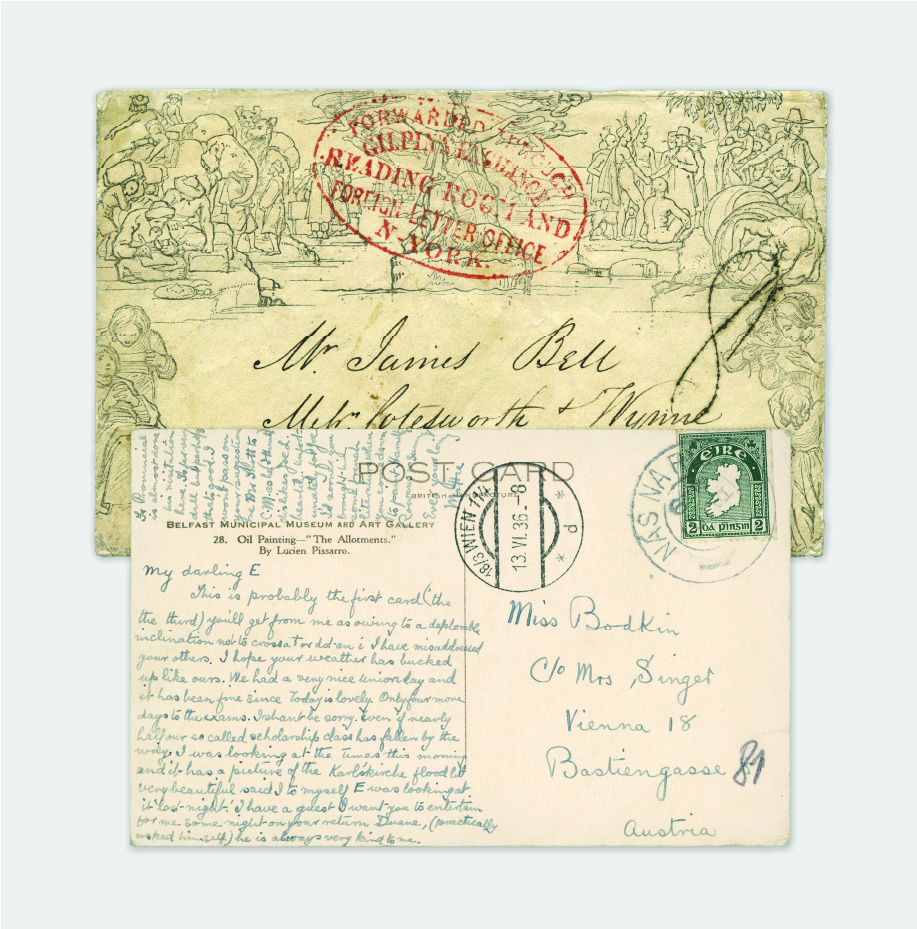 FORWARDED THROUGH
GILPIN'S EXCHANGE
READING ROOM AND
FOREIGN LETTER OFFICE
N-YORK.
Mr James Bell
Cotesworth & Wynne
POST CARD
BRITISH MANUFACTURE
BELFAST MUNICIPAL MUSEUM AND ART GALLERY
28. Oil Painting—"The Allotments."
By Lucien Pissarro.
My darling E
This is probably the first card (tho
the third) you'll get from me as owing to a deplorable
inclination not to cross a t or dot an i I have misaddressed
your others. I hope your weather has bucked
up like ours. We had a very nice Union day and
it has been fine since Today is lovely. Only four more
days to the exams. I shant be sorry. Even if nearly
half our so called scholarship class has fallen by the
way. I was looking at the Times this morning
and it has a picture of the Karlskirche flood lit
very beautiful said I to myself E was looking at
it last night. I have a guest I want you to entertain
for me some night on your return Duane, (practically
asked himself) he is always very kind to me.
18/3 WIEN 114
13.VI.36.-8
* P *
NÁS NA
EIRE
2 DÁ PINSIN 2
Miss Bodkin
C/o Mrs Singer
Vienna 18
Bastiengasse 81
Austria